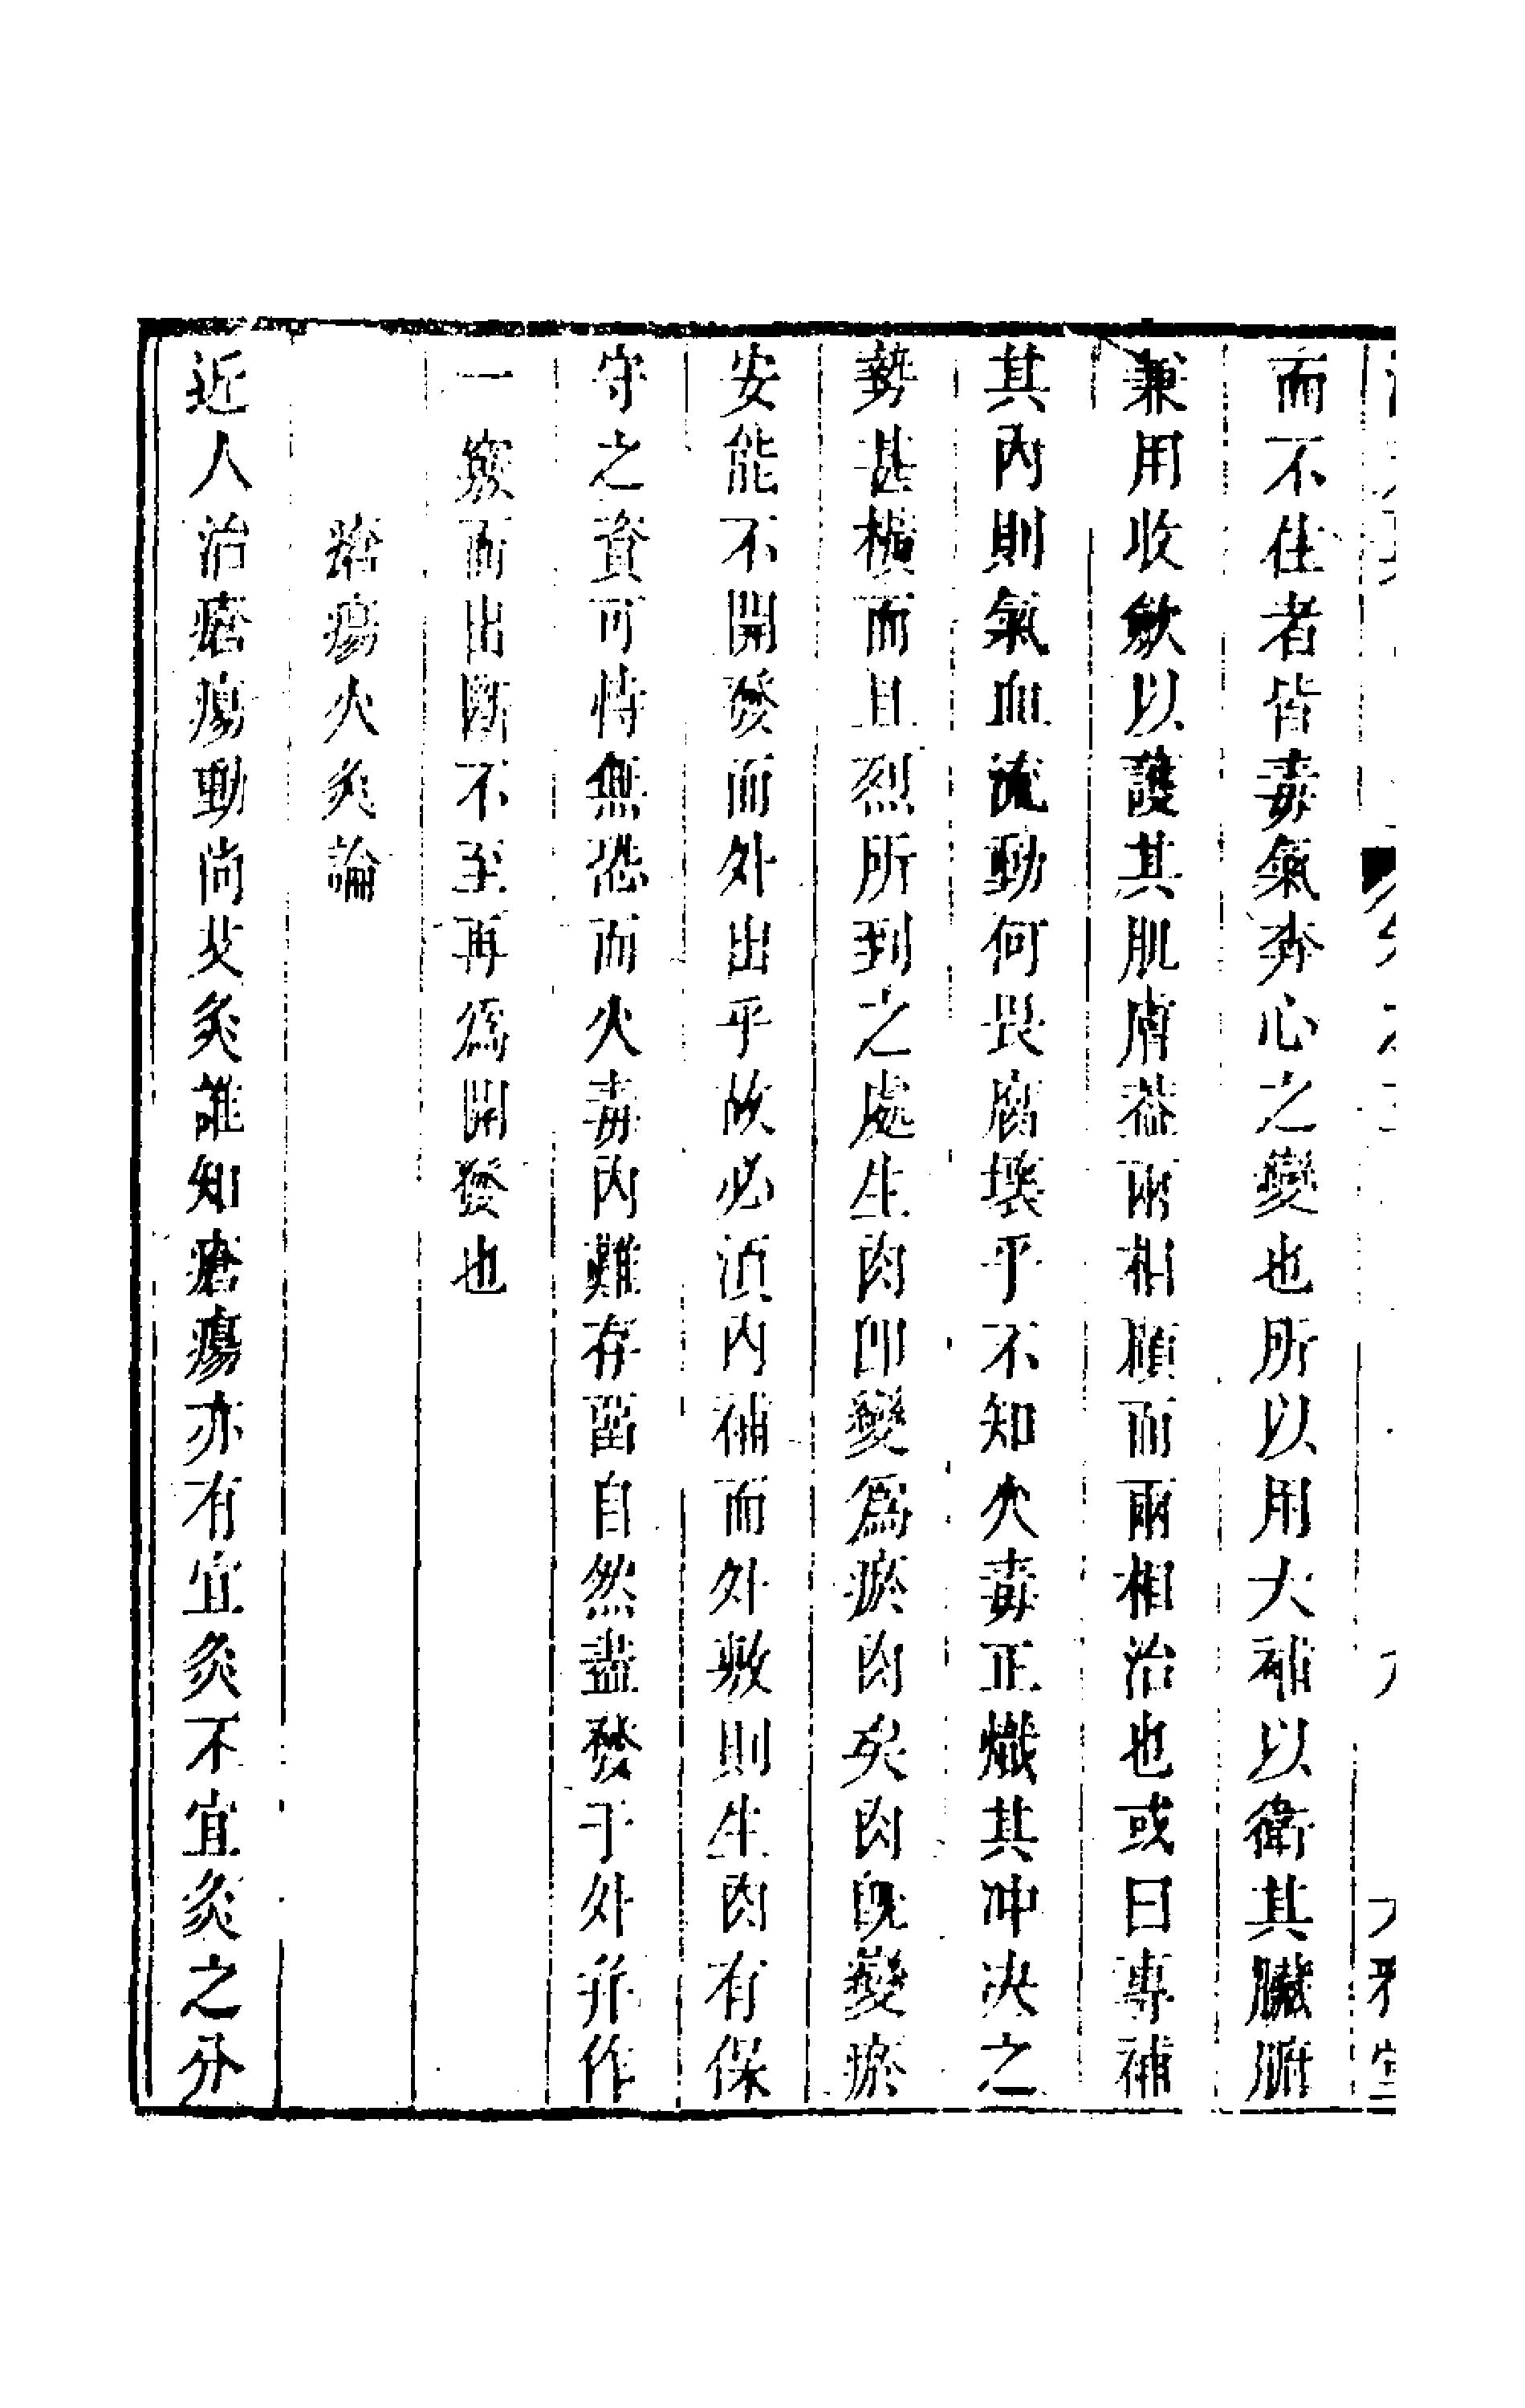 而不住者皆毒氣奔心之變也所以用大補以衛其臟腑
兼用收斂以護其肌膚葢兩相顧而兩相治也或曰專補
其內則氣血流動何畏腐壞乎不知火毒正熾其冲决之
勢甚橫而且烈所到之處生肉卽變爲瘀肉矣肉旣變瘀
安能不開發而外出乎故必湏内補而外敷則生肉有保
守之資可恃無恐而火毒内難存畱自然盡發于外并作
一竅而出斷不至再爲開發也
瘡瘍火灸論
近人治瘡瘍動尚艾灸誰知瘡瘍亦有宜灸不宜灸之分